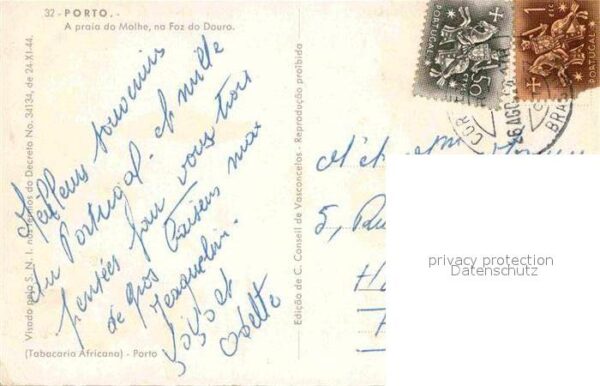 32 - PORTO. -
A praia do Molhe, na Foz do Douro.
Meilleurs souvenirs
du Portugal. et mille
pensées pour vous trois
de gros baisers max
Jacqueline.
et
Odette
Visado pelo S. N. I. nos termos do Decreto No. 34134, de 24-XI-44.
(Tabacaria Africana) - Porto
Edição de C. Conseil de Vasconcelos - Reprodução proibida
PORTUGAL
50
PORTUGAL
1
COR
26 AGO
BRA
M et Mme
5, Rue
privacy protection
Datenschutz